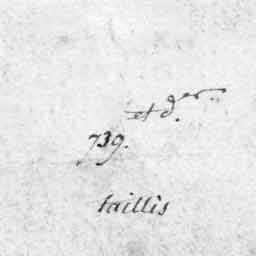 et d.er
739.
taillis